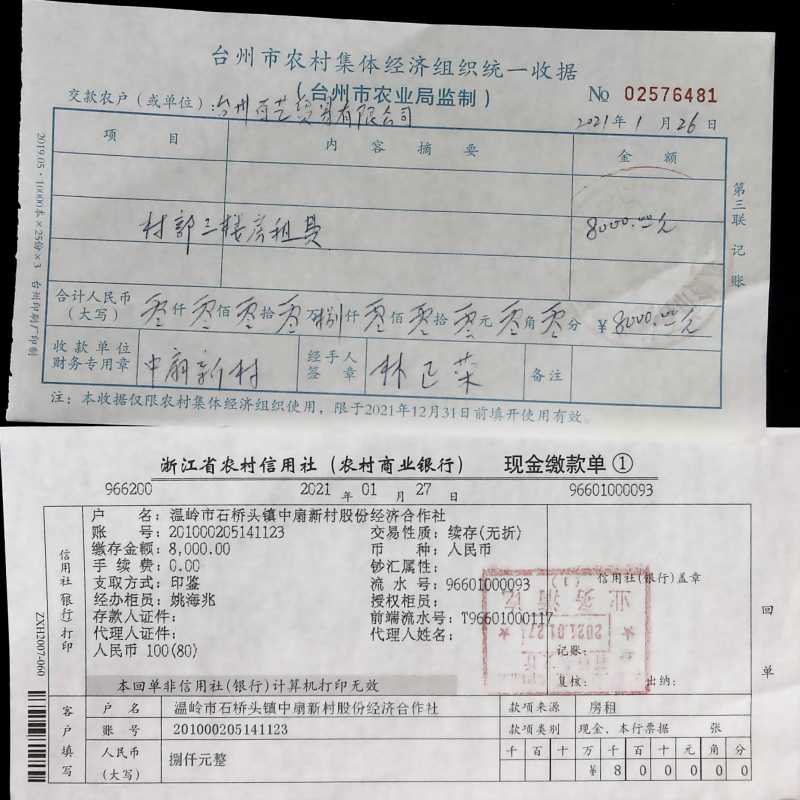 台州市农村集体经济组织统一收据
（台州市农业局监制）
№ 02576481
交款农户（或单位）：台州百艺贸易有限公司
2021年1月26日
项目 内容摘要 金额
村部三楼房租费 8000.00元
合计人民币（大写） 零仟零佰零拾零万捌仟零佰零拾零元零角零分 ¥8000.00元
收款单位财务专用章 中扇新村 经手人签章 林正菜 备注
注：本收据仅限农村集体经济组织使用，限于2021年12月31日前填开使用有效。
2019.05·10000本×25份×3 台州印刷厂印制
第三联 记账
浙江省农村信用社（农村商业银行） 现金缴款单①
966200 2021年01月27日 96601000093
信用社（银行）打印
户名：温岭市石桥头镇中扇新村股份经济合作社
账号：201000205141123 交易性质：续存(无折)
缴存金额：8,000.00 币种：人民币
手续费：0.00 钞汇属性：
支取方式：印鉴 流水号：96601000093
经办柜员：姚海兆 授权柜员：
存款人证件： 前端流水号：T96601000117
代理人证件： 代理人姓名：
人民币 100(80)
信用社(银行)盖章
业务清讫
2021.01.27
记账：
复核： 出纳：
本回单非信用社(银行)计算机打印无效
回单
ZXH2007-060
客户填写
户名 温岭市石桥头镇中扇新村股份经济合作社 款项来源 房租
账号 201000205141123 款项类别 现金、本行票据 张
人民币（大写） 捌仟元整 千百十万千百十元角分
¥800000